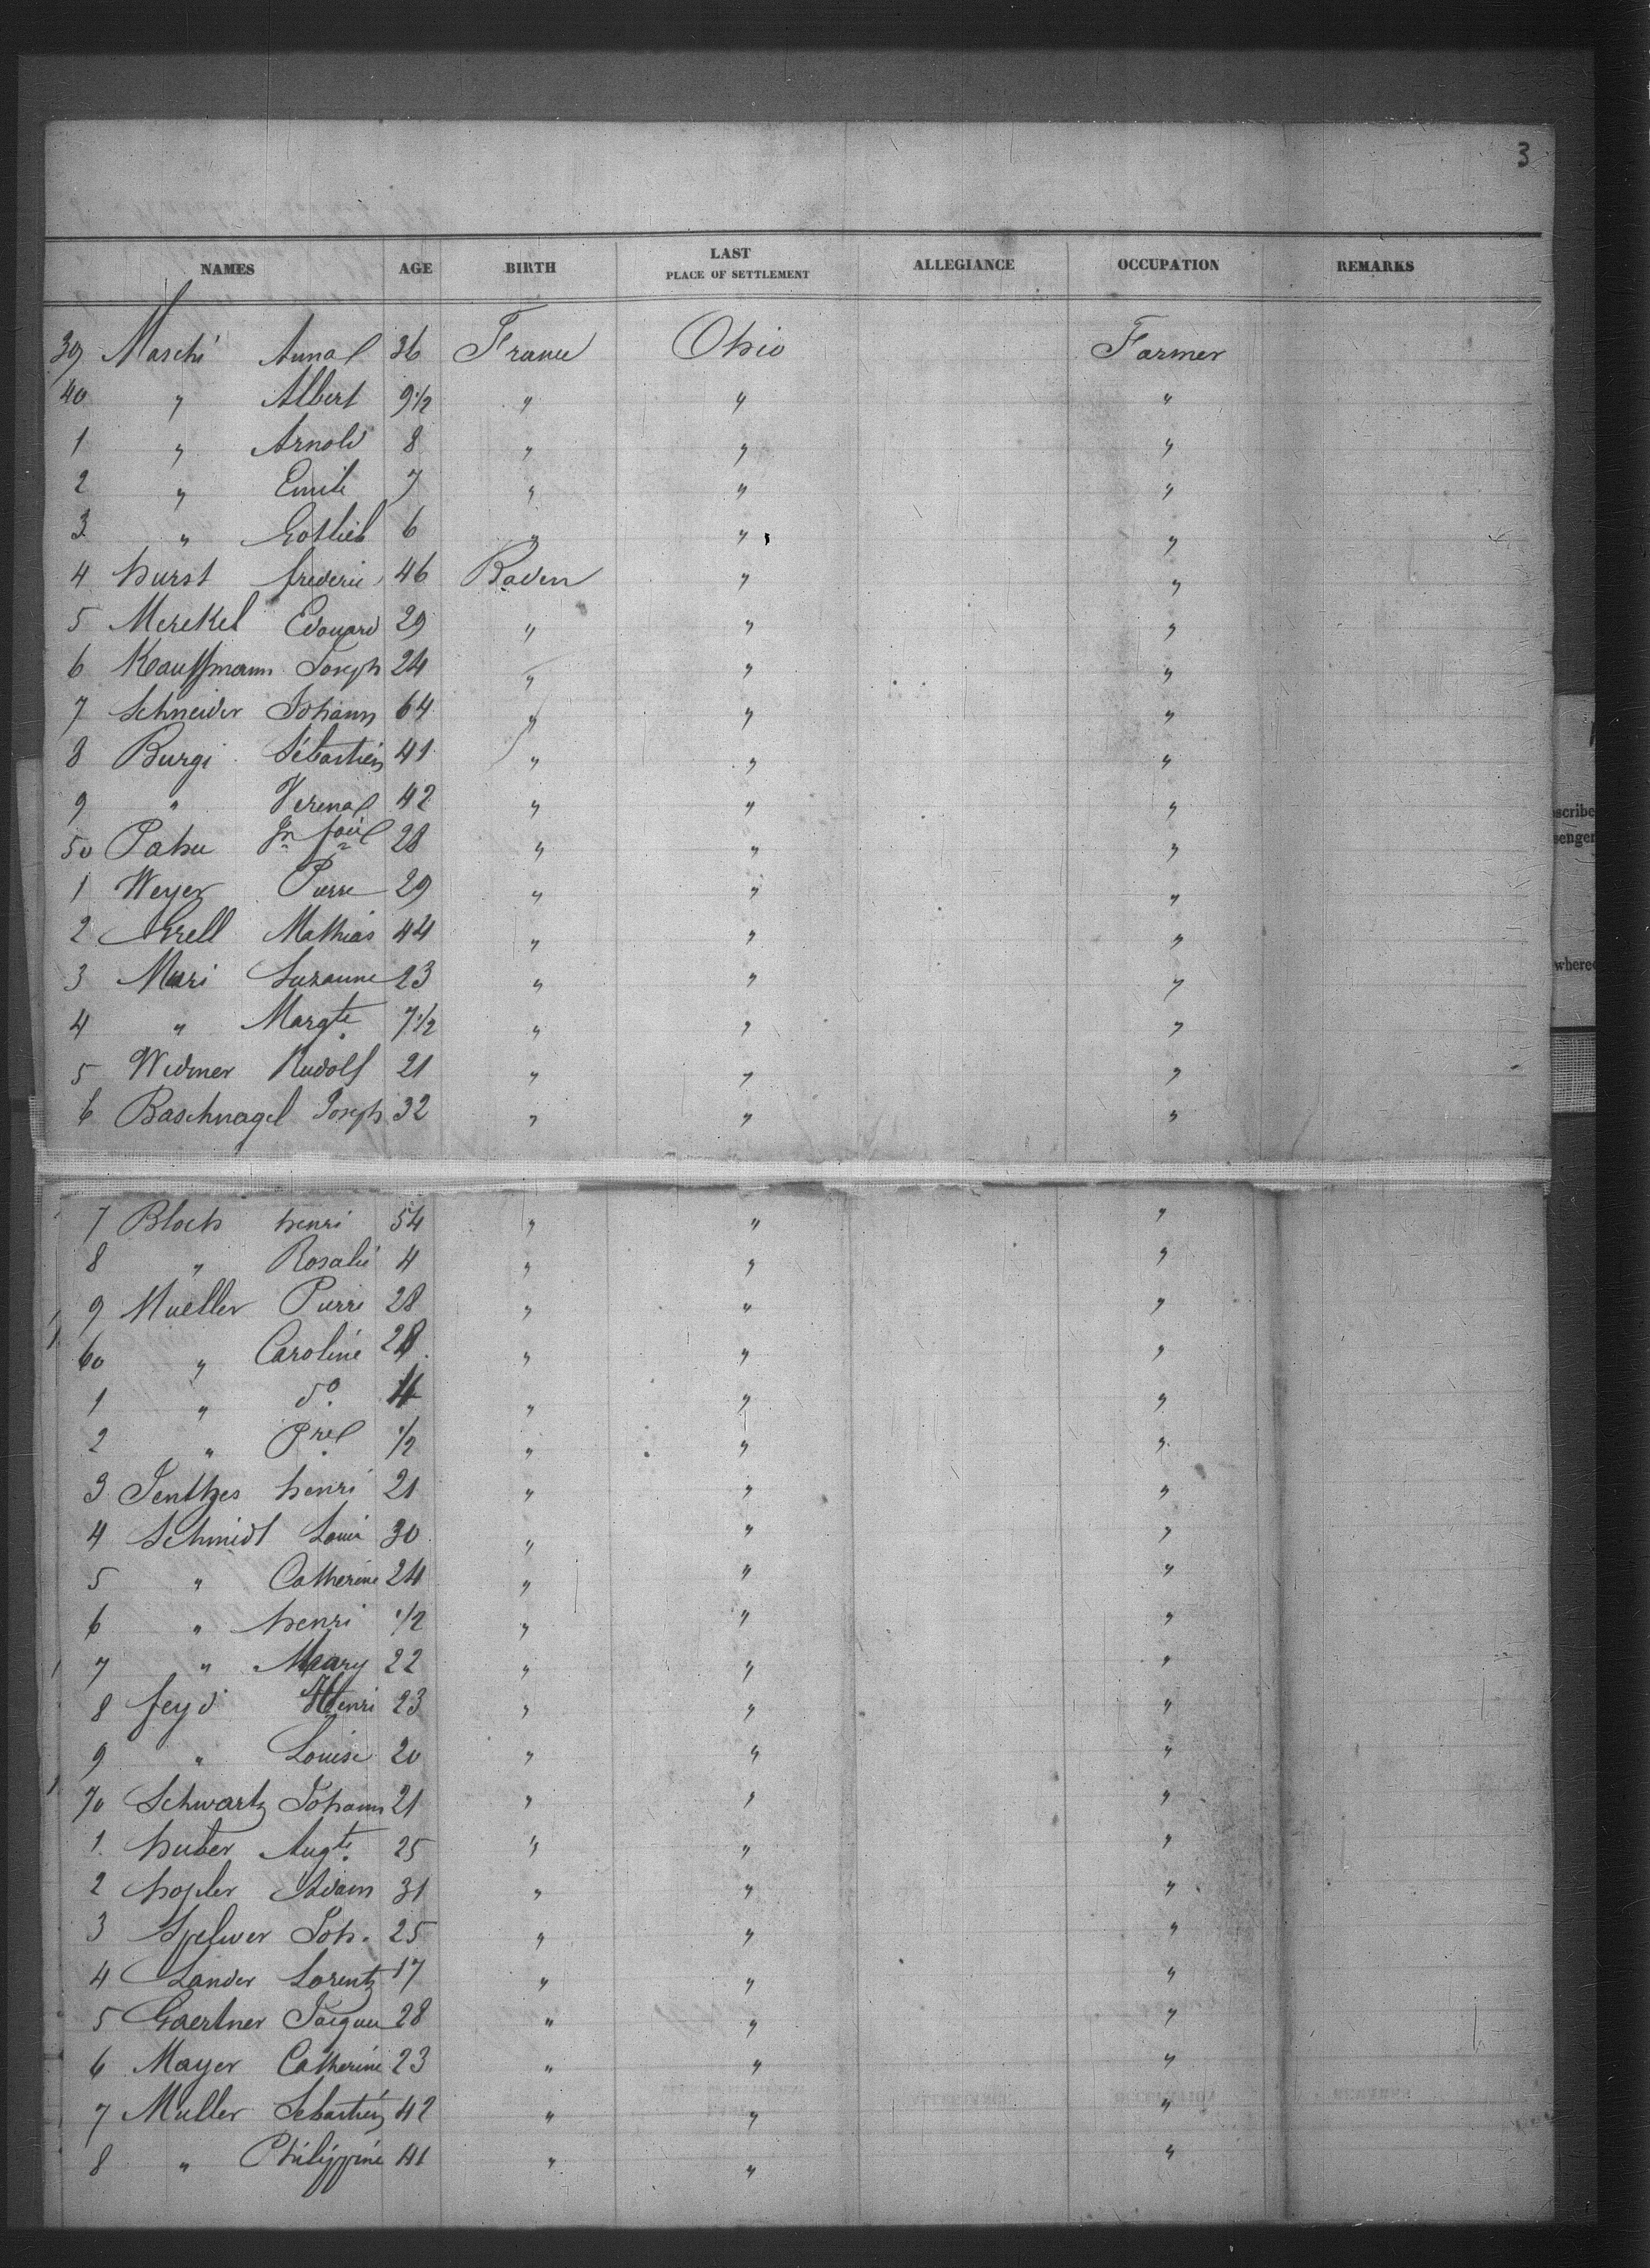 3
NAMES AGE BIRTH LAST PLACE OF SETTLEMENT ALLEGIANCE OCCUPATION REMARKS
39 Maschi Anna 36 France Ohio Farmer
40 " Albert 9 1/2 " " "
1 " Arnold 8 " " "
2 " Emile 7 " " "
3 " Gotlieb 6 " " "
4 hurst frederic 46 Baden " "
5 Merekel Edouard 29 " " "
6 Kauffmann Joseph 24 " " "
7 Schneider Johann 64 " " "
8 Burgi Sébastien 41 " " "
9 " Verena 42 " " "
50 Pahu 28 " " "
1 Weyer Pierre 29 " " "
2 Grell Mathias 44 " " "
3 Mari Suzanne 23 " " "
4 " Margte. 7 1/2 " " "
5 Widmer Rudolf 21 " " "
6 Baschnagel Joseph 32 " " "
7 Bloch henri 54 " " "
8 " Rosalie 4 " " "
9 Mueller Pierre 28 " " "
60 " Caroline " " "
1 " do. 4 " " "
2 " 1/2 " " "
3 Jenthes henri 21 " " "
4 Schmidt Louis 30 " " "
5 " Catherine 24 " " "
6 " henri 1/2 " " "
7 " Mary 22 " " "
8 feyd Henri 23 " " "
9 " Louise 20 " " "
70 Schwartz Johann 21 " " "
1 huber Augte. 25 " " "
2 hopler Adam 31 " " "
3 Spelwer Joh. 25 " " "
4 Lander Lorentz 17 " " "
5 Gaertner Jacques 28 " " "
6 Mayer Catherine 23 " " "
7 Muller Sebastien 42 " " "
8 " Philippine 41 " " "
scribe
senger
where